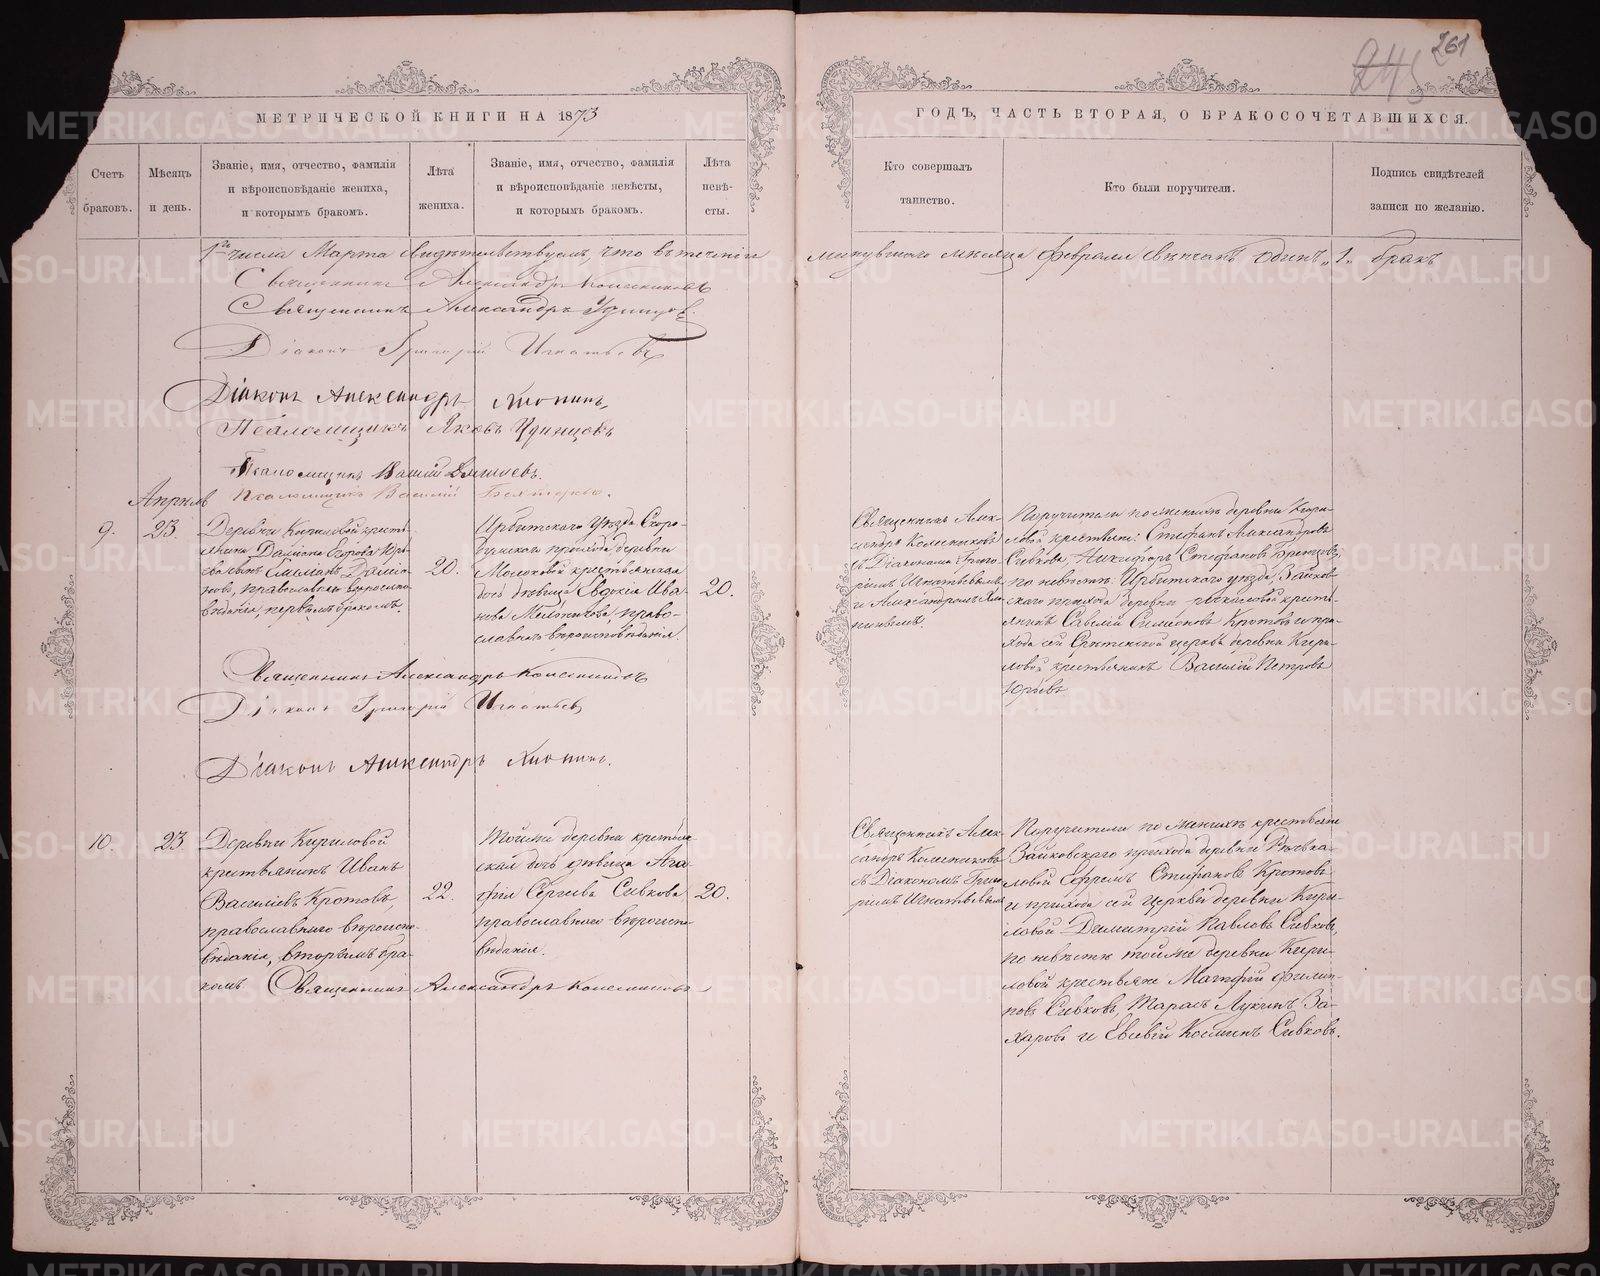 261
245
МЕТРИЧЕСКОЙ КНИГИ НА 1873
ГОДЪ, ЧАСТЬ ВТОРАЯ, О БРАКОСОЧЕТАВШИХСЯ.
Счетъ
браковъ.
Мѣсяцъ
и день.
Званіе, имя, отчество, фамилія
и вѣроисповѣданіе жениха,
и которымъ бракомъ.
Лѣта
жениха.
Званіе, имя, отчество, фамилія
и вѣроисповѣданіе невѣсты,
и которымъ бракомъ.
Лѣта
невѣ-
сты.
Кто совершалъ
таинство.
Кто были поручители.
Подпись свидѣтелей
записи по желанію.
1го числа Марта свидѣтельствуемъ, что въ теченіи минувшаго мѣсяца февраля вѣнчанъ одинъ „1„ бракъ
Священникъ Александръ Колесниковъ
Священникъ Александръ Удинцовъ
Діаконъ Григорій Игнатьевъ
Діаконъ Александръ Хлопинъ,
Псаломщикъ Яковъ Удинцовъ
Псаломщикъ Василій
Псаломщикъ Василій
Апрѣль
9.
23.
Деревни Кириловой кресть-
янина Даміана Егорова Юрь-
ева сынъ Емеліанъ Даміа-
новъ, православнаго вѣроиспо-
вѣданія, первымъ бракомъ.
20.
Ирбитскаго уѣзда Скоро-
думскаго прихода деревни
Молоковой крестьянская
дочь дѣвица Евдокія Ива-
нова Мельникова, право-
славнаго вѣроисповѣданія.
20.
Священникъ Алек-
сандръ Колесниковъ
съ Діаконами Григо-
ріемъ Игнатьевымъ
и Александромъ Хло-
пинымъ.
Поручители по женихѣ деревни Кири-
ловой крестьяне: Стефанъ Александровъ
Сивковъ, Никифоръ Стефановъ
по невѣстѣ: Ирбитскаго уѣзда, Зайков-
скаго прихода деревни кресть-
янинъ Савелій Симеоновъ Кротовъ и при-
хода сей Срѣтенской церкви деревни Кири-
ловой крестьянинъ Василій Петровъ
Юрьевъ
Священникъ Александръ Колесниковъ
Діаконъ Григорій Игнатьевъ
Діаконъ Александръ Хлопинъ.
10.
23
Деревни Кириловой
крестьянинъ Иванъ
Василіевъ Кротовъ,
православнаго вѣроиспо-
вѣданія, вторымъ бра-
комъ
22.
Тойже деревни крестьян-
ская дочь дѣвица Ага-
фія Сергіева Сивкова
православнаго вѣроиспо-
вѣданія.
20.
Священникъ Алек-
сандръ Колесниковъ
съ Діакономъ Григо-
ріемъ Игнатьевымъ
Поручители по женихѣ крестьяне
Зайковскаго прихода деревни
ловой Ефремъ Стефановъ Кротовъ
и прихода сей церкви деревни Кири-
ловой Димитрій Павловъ Сивковъ,
по невѣстѣ тойже деревни Кири-
ловой крестьяне Матфій Филип-
повъ Сивковъ, Тарасъ Лукинъ За-
харовъ и Евсевій Косминъ Сивковъ.
Священникъ Александръ Колесниковъ
METRIKI.GASO-URAL.RU